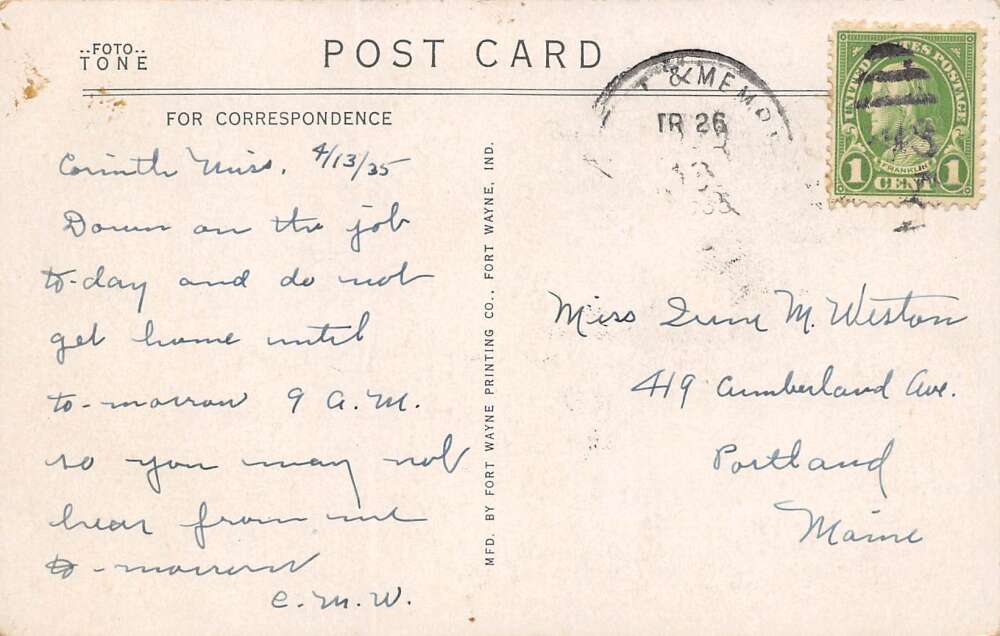 --FOTO--
TONE
POST CARD
FOR CORRESPONDENCE
Corinth Miss. 4/13/35
Down on the job
to-day and do not
get home until
to-morrow 9 A.M.
so you may not
hear from me
to-morrow
E.M.W.
MFD. BY FORT WAYNE PRINTING CO., FORT WAYNE, IND.
& MEMP
TR 26
13
UNITED STATES POSTAGE
FRANKLIN
1 CENT 1
Miss June M. Weston
419 Cumberland Ave.
Portland
Maine